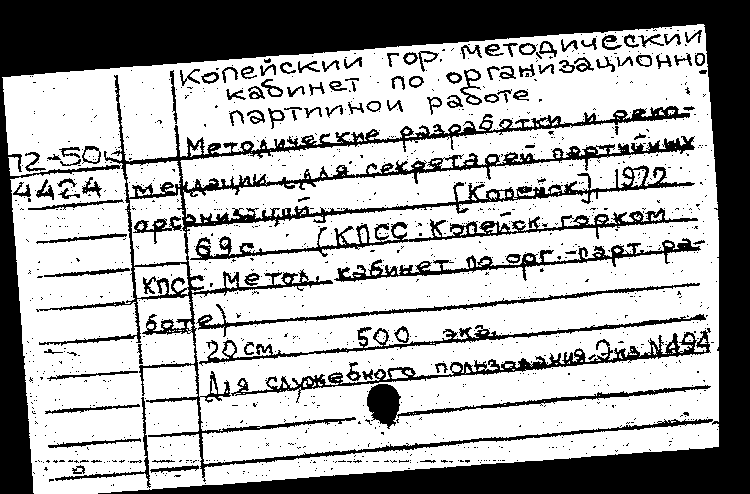 Копейский гор. методический
кабинет по организационно-
партийной работе.
72-50к Методические разработки и реко-
4424 мендации для секретарей партийных
организаций. [Копейск], 1972
69 с. (КПСС. Копейск. горком
КПСС. Метод. кабинет по орг.-парт. ра-
боте)
20 см. 500 экз.
Для служебного пользования. Экз. N494